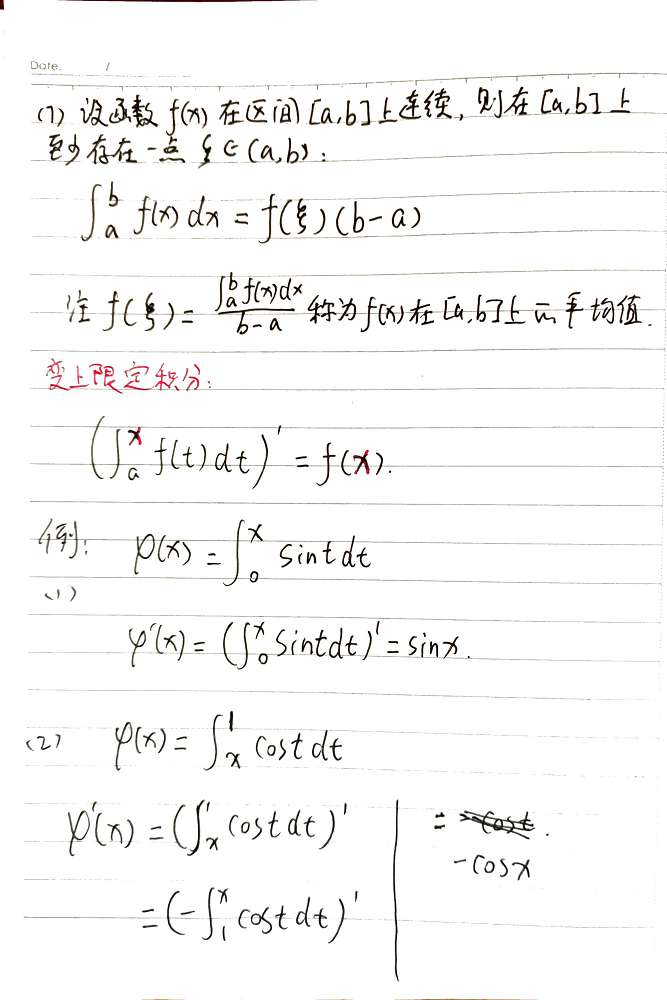 Date. /
(7) 设函数 f(x) 在区间 [a,b] 上连续, 则在 [a,b] 上
至少存在一点 ξ∈(a,b):
∫_a^b f(x) dx = f(ξ)(b-a)
注 f(ξ) = \frac{∫_a^b f(x)dx}{b-a} 称为 f(x) 在 [a,b] 上的平均值.
变上限定积分:
(∫_a^x f(t) dt)' = f(x).
例: φ(x) = ∫_0^x sint dt
(1)
φ'(x) = (∫_0^x sint dt)' = sinx.
(2) φ(x) = ∫_x^1 cost dt
φ'(x) = (∫_x^1 cost dt)'
= (-∫_1^x cost dt)'
= -cost.
-cosx